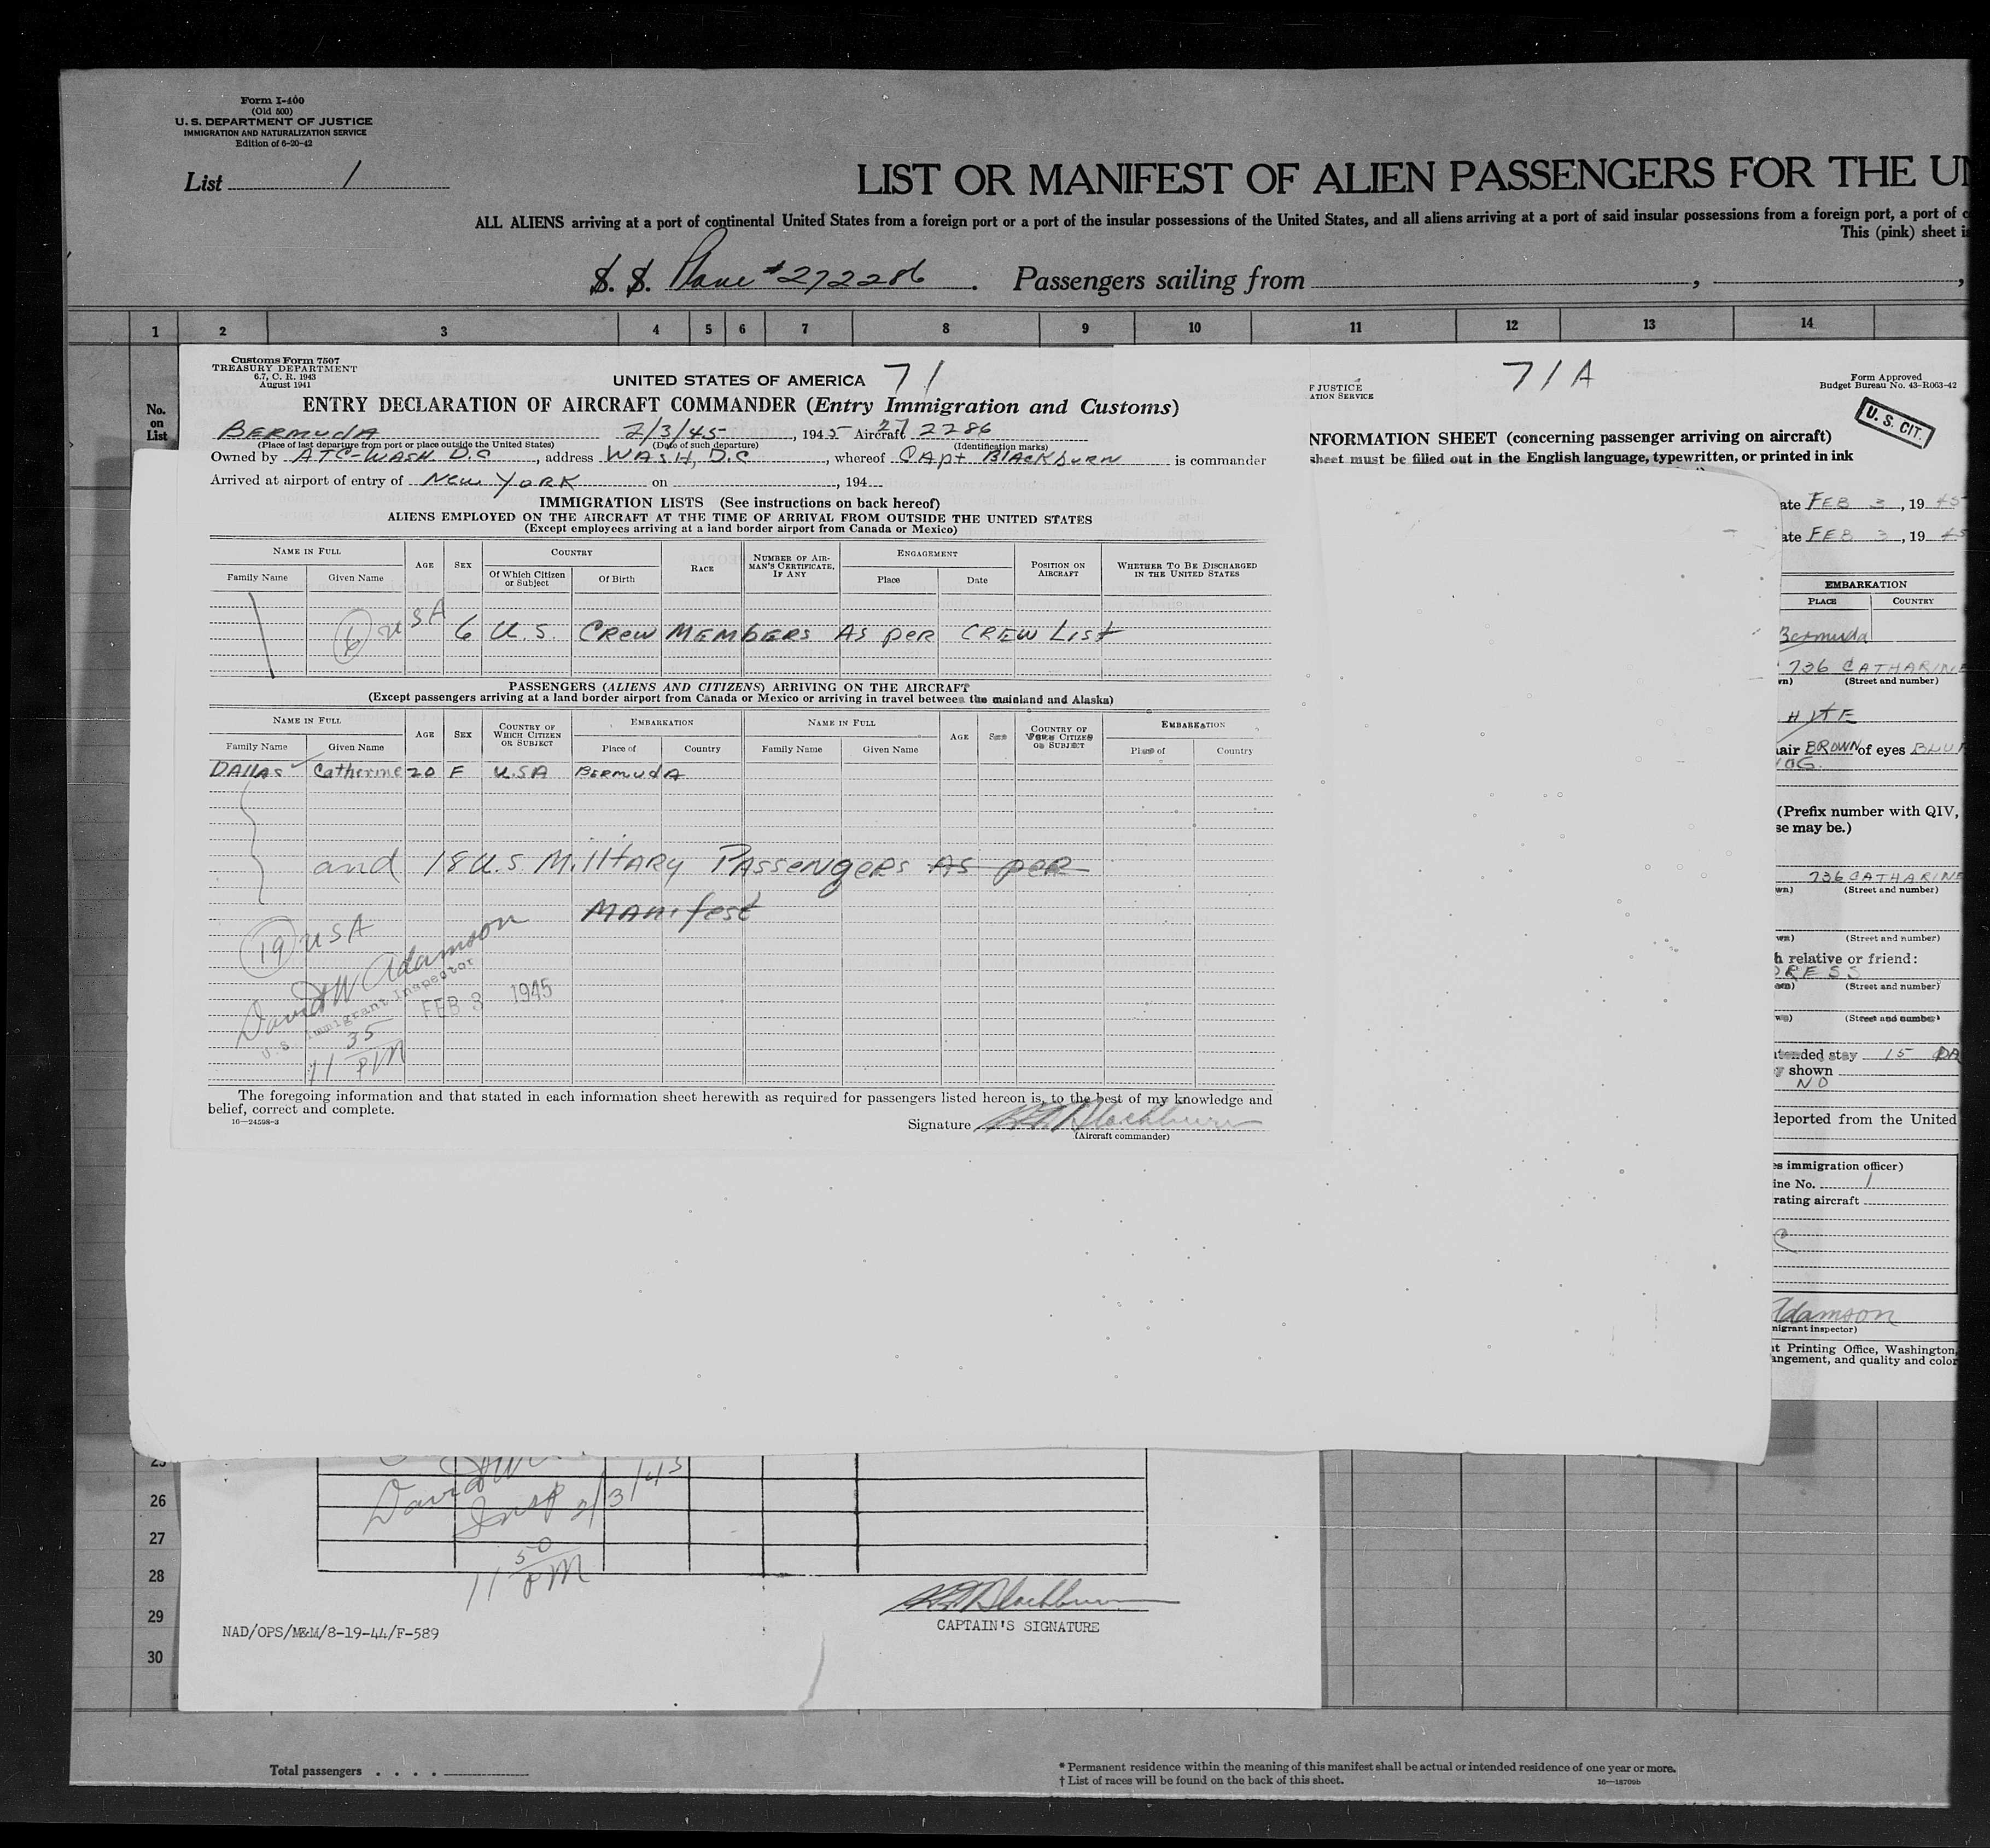 Form I-400
(Old 500)
U. S. DEPARTMENT OF JUSTICE
IMMIGRATION AND NATURALIZATION SERVICE
Edition of 6-20-42
List 1
LIST OR MANIFEST OF ALIEN PASSENGERS FOR THE UN
ALL ALIENS arriving at a port of continental United States from a foreign port or a port of the insular possessions of the United States, and all aliens arriving at a port of said insular possessions from a foreign port, a port of c
This (pink) sheet is
S. S. Plane #272286 . Passengers sailing from , ,
1 2 3 4 5 6 7 8 9 10 11 12 13 14
No. on List
Customs Form 7507
TREASURY DEPARTMENT
6.7, C. R. 1943
August 1941
UNITED STATES OF AMERICA 71
ENTRY DECLARATION OF AIRCRAFT COMMANDER (Entry Immigration and Customs)
BERMUDA 2/3/45, 1945 Aircraft 27 2286
(Place of last departure from port or place outside the United States) (Date of such departure) (Identification marks)
Owned by ATC-WASH. D.C , address WASH, D.C , whereof CApt BlAckburn is commander
Arrived at airport of entry of New YORK on , 194
IMMIGRATION LISTS (See instructions on back hereof)
ALIENS EMPLOYED ON THE AIRCRAFT AT THE TIME OF ARRIVAL FROM OUTSIDE THE UNITED STATES
(Except employees arriving at a land border airport from Canada or Mexico)
NAME IN FULL AGE SEX COUNTRY RACE NUMBER OF AIRMAN'S CERTIFICATE, IF ANY ENGAGEMENT POSITION ON AIRCRAFT WHETHER TO BE DISCHARGED IN THE UNITED STATES
Family Name Given Name Of Which Citizen or Subject Of Birth Place Date
6 USA
6 U.S. Crew MEMbERS AS per CREW List
PASSENGERS (ALIENS AND CITIZENS) ARRIVING ON THE AIRCRAFT
(Except passengers arriving at a land border airport from Canada or Mexico or arriving in travel between the mainland and Alaska)
NAME IN FULL AGE SEX COUNTRY OF WHICH CITIZEN OR SUBJECT EMBARKATION NAME IN FULL AGE SEX COUNTRY OF WHICH CITIZEN OR SUBJECT EMBARKATION
Family Name Given Name Place of Country Family Name Given Name Place of Country
DAllAS Catherine 20 F U.S.A BERMUdA
and 18 U.S Military PAssengeRs AS peR
MANifest
19 USA
David W Adamson
U.S. Immigrant Inspector
FEB 3 1945
11 35 PM
The foregoing information and that stated in each information sheet herewith as required for passengers listed hereon is, to the best of my knowledge and
belief, correct and complete.
16—24598-3
Signature Blackburn
(Aircraft commander)
71A
F JUSTICE
ATION SERVICE
Form Approved
Budget Bureau No. 43-R063-42
U. S. CIT.
NFORMATION SHEET (concerning passenger arriving on aircraft)
sheet must be filled out in the English language, typewritten, or printed in ink
ate FEB 3, 19 45
ate FEB 3, 19 45
EMBARKATION
PLACE COUNTRY
Bermuda
736 CATHARINE
wn) (Street and number)
HITE
air BROWN of eyes BLUE
(Prefix number with QIV,
se may be.)
736 CATHARINE
wn) (Street and number)
wn) (Street and number)
h relative or friend:
DRESS
wn) (Street and number)
wn) (Street and number)
tended stay 15 DA
y shown
NO
deported from the United
es immigration officer)
ine No. 1
rating aircraft
Adamson
migrant inspector)
t Printing Office, Washington,
angement, and quality and color
25
26
27
28
29
30
David W
Insp 2/3/45
11 50 PM
Blackburn
CAPTAIN'S SIGNATURE
NAD/OPS/M&M/8-19-44/F-589
Total passengers . . . .
* Permanent residence within the meaning of this manifest shall be actual or intended residence of one year or more.
† List of races will be found on the back of this sheet.
16—18709b